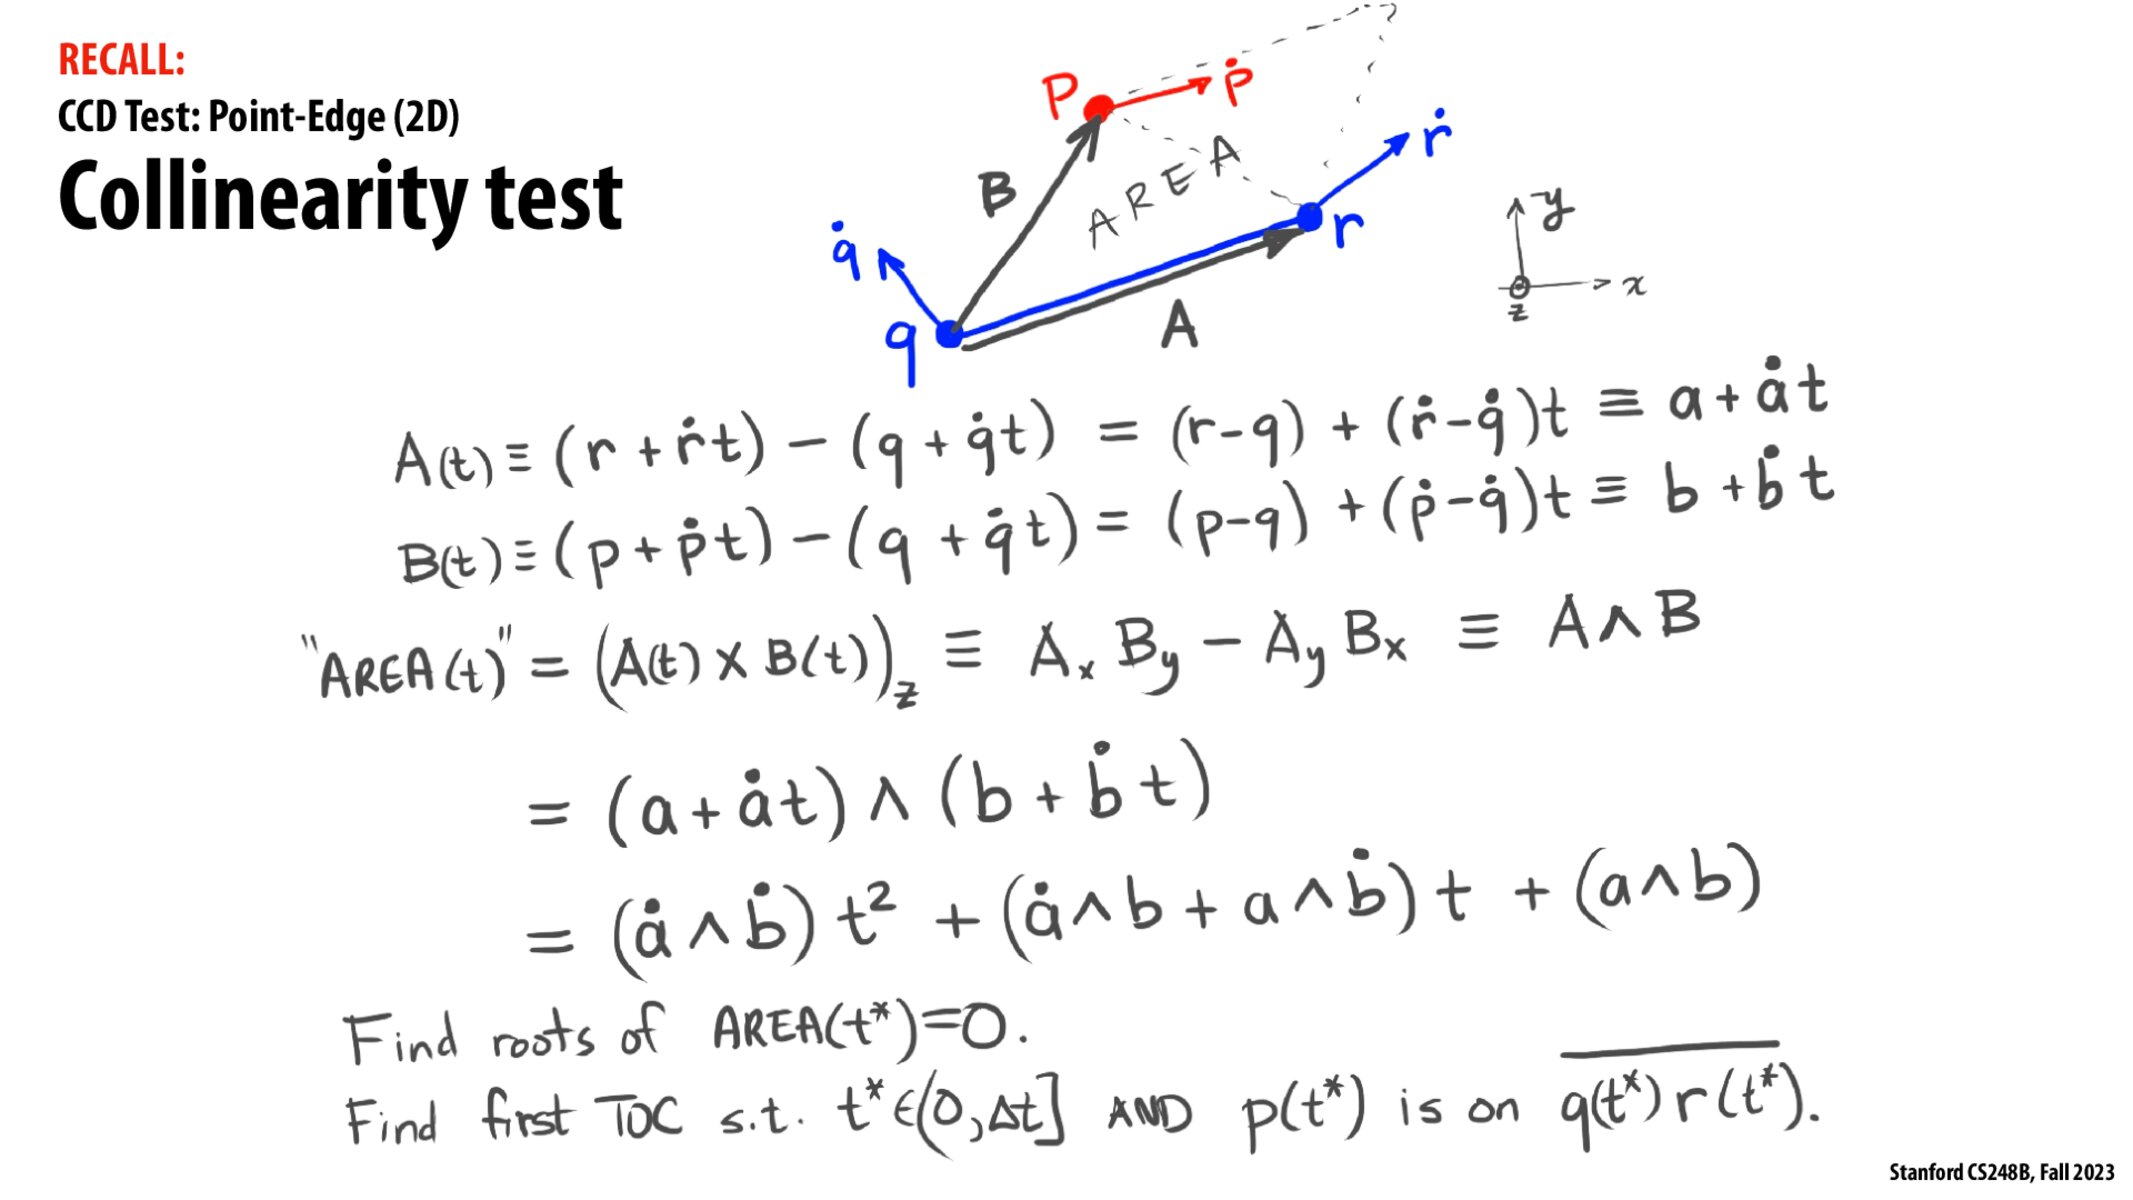 RECALL:
CCD Test: Point-Edge (2D)
Collinearity test
P ṗ
ṙ
B
AREA
q̇
r
y
x
z
q
A
A(t) ≡ (r + ṙt) − (q + q̇t) = (r−q) + (ṙ−q̇)t ≡ a + ȧt
B(t) ≡ (p + ṗt) − (q + q̇t) = (p−q) + (ṗ−q̇)t ≡ b + ḃt
"AREA(t)" = (A(t) X B(t))_z ≡ A_x B_y − A_y B_x ≡ A∧B
= (a + ȧt) ∧ (b + ḃt)
= (ȧ∧ḃ) t² + (ȧ∧b + a∧ḃ) t + (a∧b)
Find roots of AREA(t*)=0.
Find first TOC s.t. t*∈(0,Δt] AND p(t*) is on q(t*)r(t*).
Stanford CS248B, Fall 2023